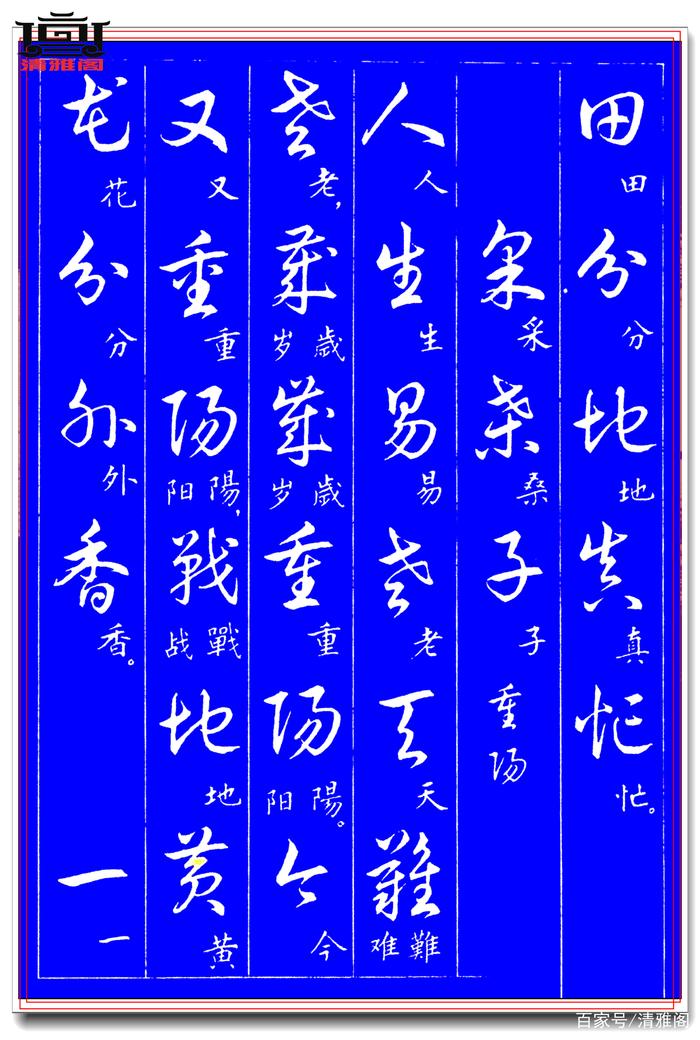 清雅阁
田田分分地地真真忙忙。
采采桑桑子子重阳
人人生生易易老老天天難难難
老老,歲岁歲歲岁歲重重陽阳陽。今今
又又重重陽阳陽,戰战戰地地黄黄
花花分分外外香香。一一
百家号/清雅阁